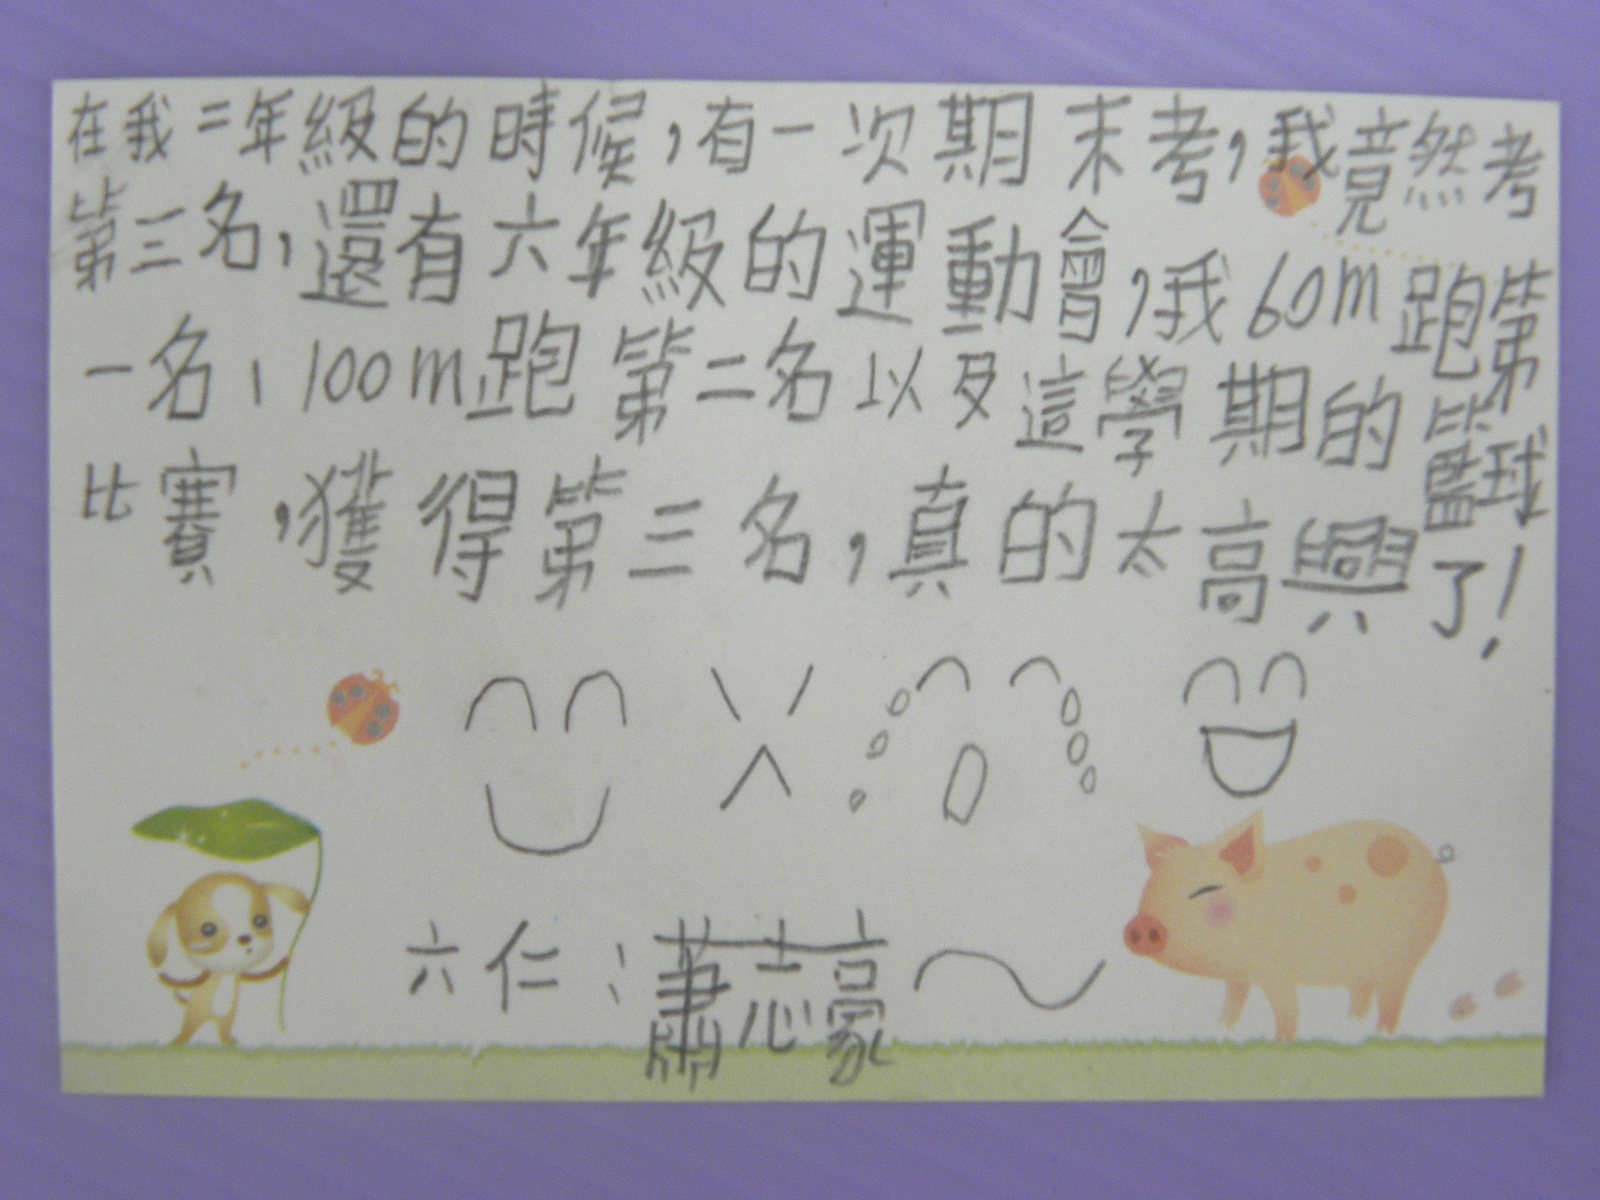 在我二年級的時候,有一次期末考,我竟然考
第三名,還有六年級的運動會,我60m跑第
一名、100m跑第二名以及這學期的籃球
比賽,獲得第三名,真的太高興了!
六仁:蕭志豪~